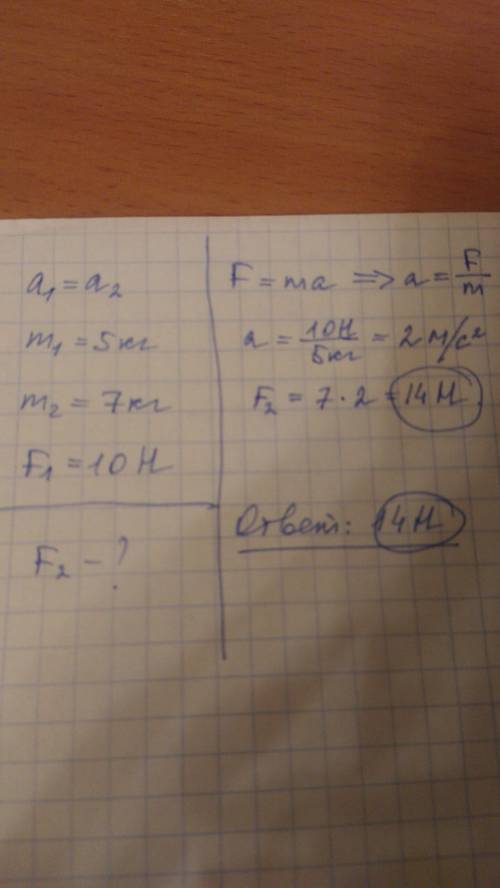 a₁ = a₂
m₁ = 5кг
m₂ = 7кг
F₁ = 10 Н
F₂ – ?
F = ma => a = F/m
a = 10Н/5кг = 2 м/с²
F₂ = 7 · 2 = 14 Н
Ответ: 14 Н